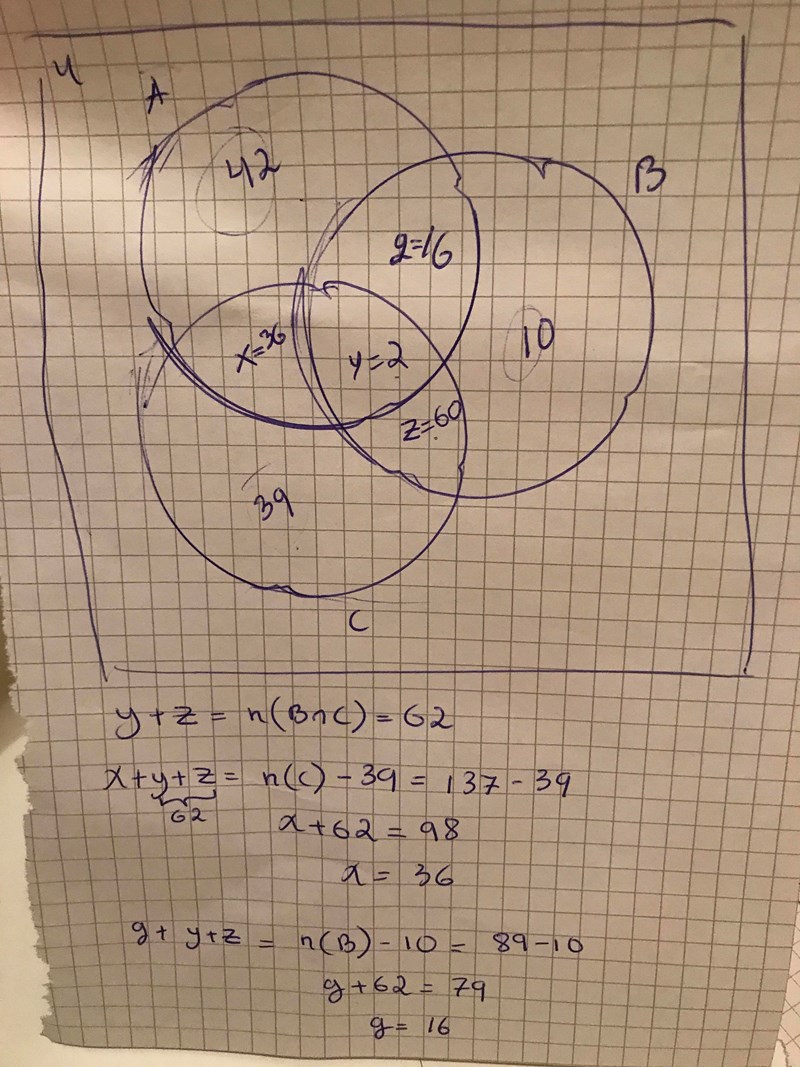 U
A
42
B
g=16
10
x=36
y=2
z=60
39
C
y+z = n(B∩C) = 62
x+y+z = n(C) - 39 = 137 - 39
62
x+62 = 98
x = 36
g+ y+z = n(B) - 10 = 89-10
g+62 = 79
g= 16